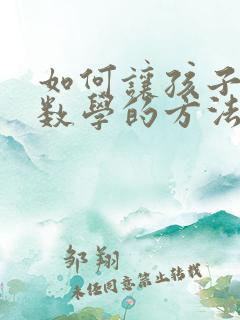 如何讓孩子
數學的方法
邹翔
未经同意禁止转载